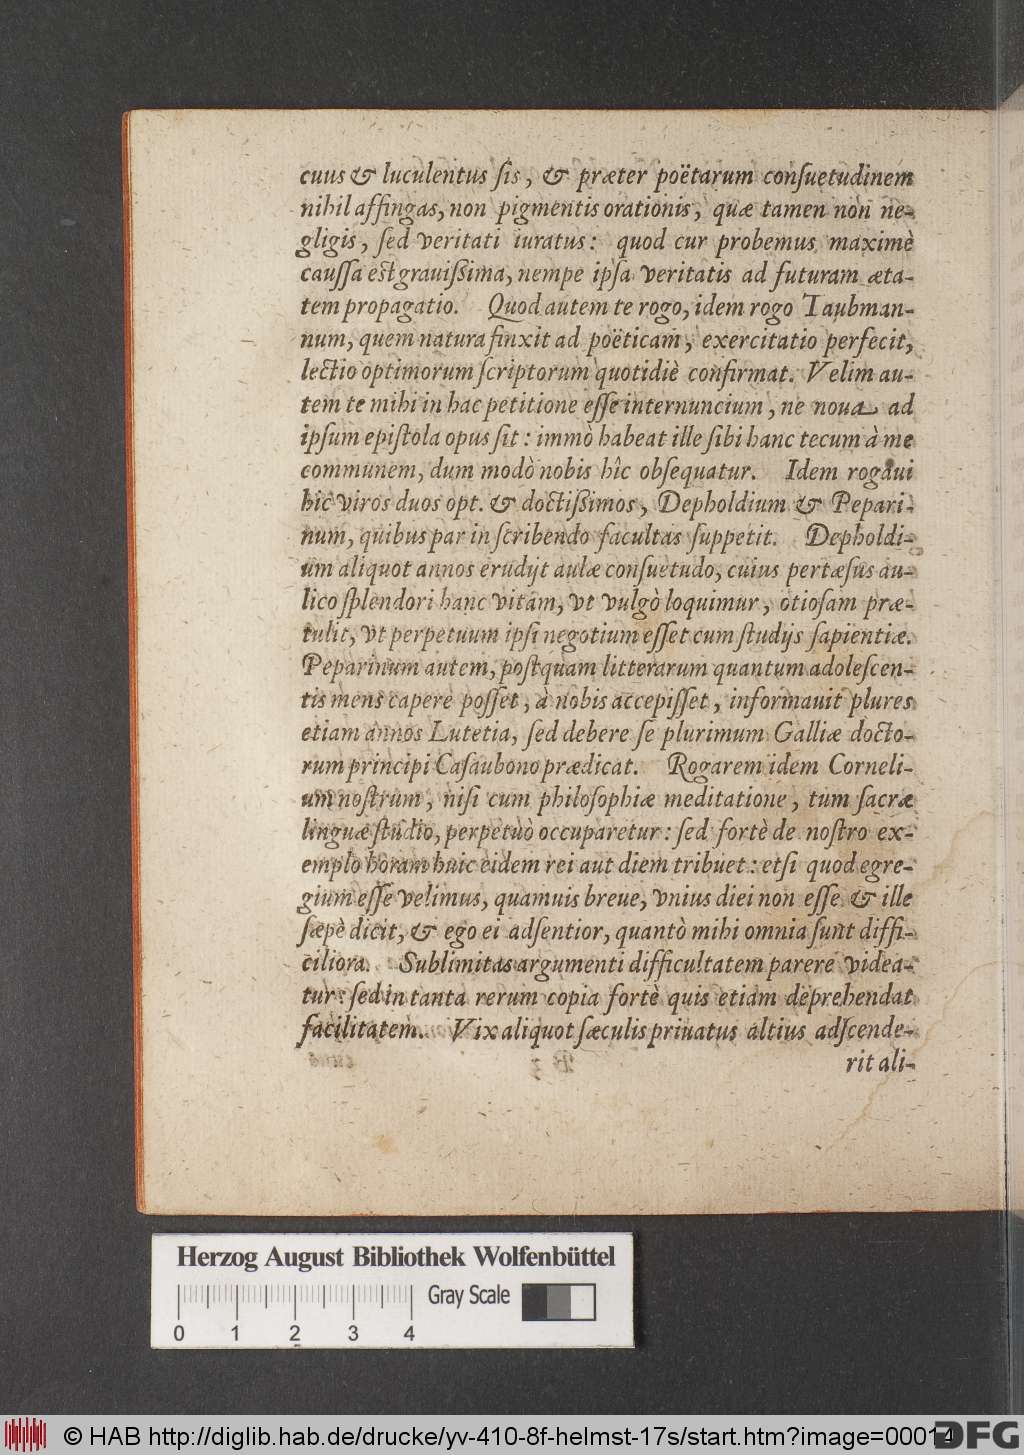 cuus & luculentus ſis, & præter poëtarum conſuetudinem
nihil affingas, non pigmentis orationis, quæ tamen non ne-
gligis, ſed veritati iuratus: quod cur probemus maximè
cauſſa est grauiſsima, nempe ipſa veritatis ad futuram æta-
tem propagatio. Quod autem te rogo, idem rogo Taubman-
num, quem natura finxit ad poëticam, exercitatio perfecit,
lectio optimorum ſcriptorum quotidiè confirmat. Velim au-
tem te mihi in hac petitione eſſe internuncium, ne noua ad
ipſum epiſtola opus ſit: immò habeat ille ſibi hanc tecum à me
communem, dum modò nobis hîc obſequatur. Idem rogaui
hic viros duos opt. & doctiſsimos, Depholdium & Pepari-
num, quibus par in ſcribendo facultas ſuppetit. Depholdi-
um aliquot annos erudijt aulæ conſuetudo, cuius pertæſus au-
lico ſplendori hanc vitam, vt vulgò loquimur, otioſam præ-
tulit, vt perpetuum ipſi negotium eſſet cum ſtudijs ſapientiæ.
Peparinum autem, poſtquam litterarum quantum adoleſcen-
tis mens capere poſſet, à nobis accepiſſet, informauit plures
etiam annos Lutetia, ſed debere ſe plurimum Galliæ docto-
rum principi Caſaubono prædicat. Rogarem idem Corneli-
um noſtrum, niſi cum philoſophiæ meditatione, tum ſacræ
linguæ ſtudio, perpetuò occuparetur: ſed fortè de noſtro ex-
emplo horam huic eidem rei aut diem tribuet: etſi quod egre-
gium eſſe velimus, quamuis breue, vnius diei non eſſe & ille
ſæpè dicit, & ego ei adſentior, quantò mihi omnia ſunt diffi-
ciliora. Sublimitas argumenti difficultatem parere videa-
tur: ſed in tanta rerum copia fortè quis etiam deprehendat
facilitatem. Vix aliquot ſæculis priuatus altius adſcende-
rit ali-
Herzog August Bibliothek Wolfenbüttel
Gray Scale
0 1 2 3 4
© HAB http://diglib.hab.de/drucke/yv-410-8f-helmst-17s/start.htm?image=00014
DFG